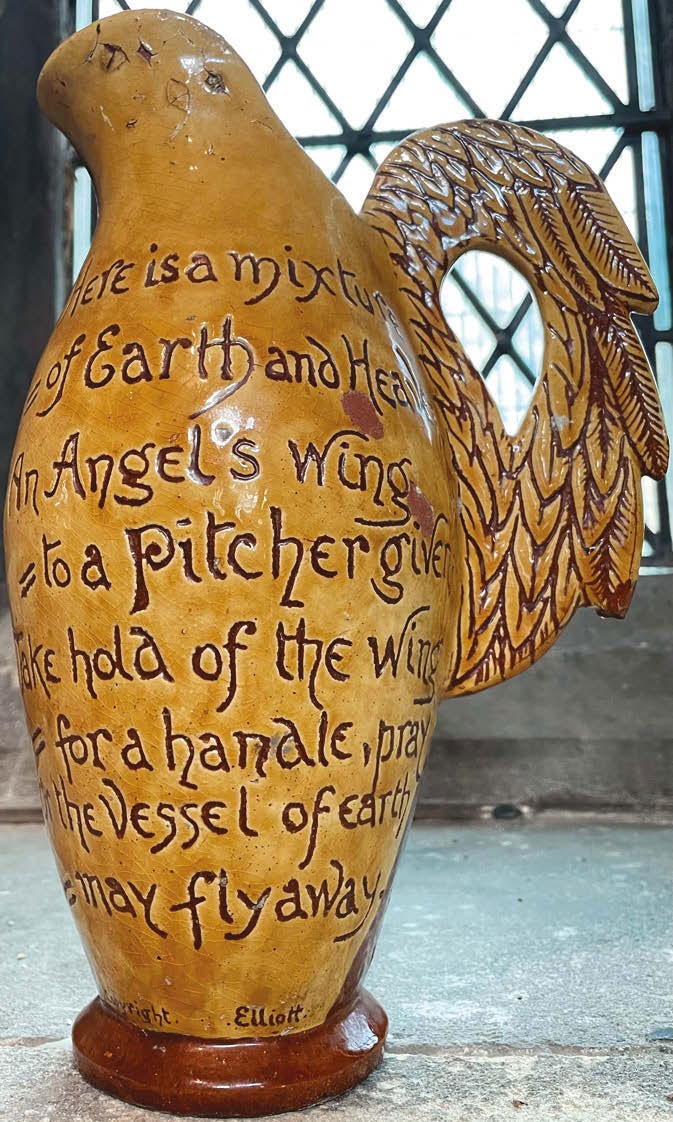 Here is a mixture
= of Earth and Heav
An Angel's wing
= to a pitcher given
Take hold of the wing
= for a handle, pray
the vessel of earth
= may fly away.
Copyright. Elliott.